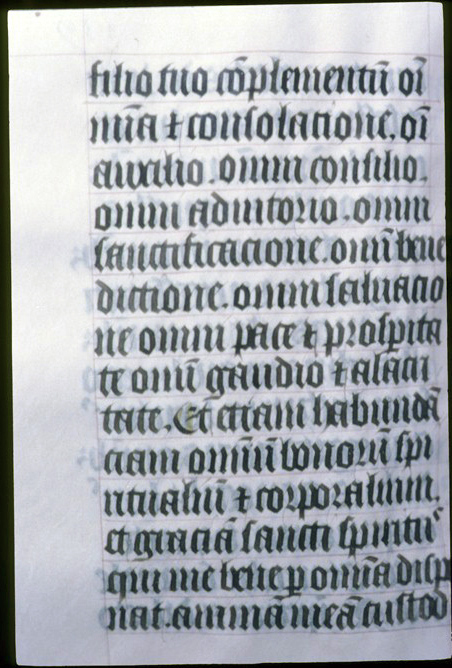 filio tuo cōplementū oī
mīa ⁊ consolatione. oī
auxilio. omni consilio.
omni adiutorio. omni
sanctificatione. omnī bene
dictione. omni saluatio
ne omni pace ⁊ prospita
te omnī gaudio ⁊ alacri
tate. Et etiam habundā
ciam omniū bonorū spi
ritualiū ⁊ corporalium.
et graciā sancti spiritus
qui me bene p omīa disp
nat. animā meā custod